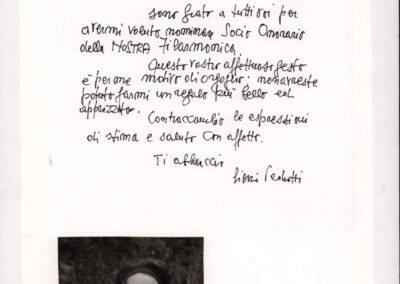 sono grato a tutti voi per
avermi voluto nominare Socio Onorario
della NOSTRA Filarmonica.
Questo vostro affettuoso gesto
è per me motivo di orgoglio: non avreste
potuto farmi un regalo più bello ed
apprezzato.
Contraccambio le espressioni
di stima e saluto con affetto.
Ti abbraccio